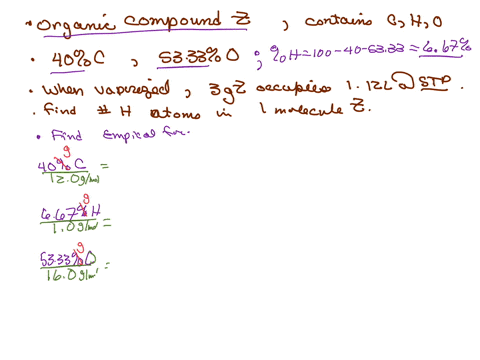 • Organic compound Z, contains C, H, O
• 40% C, 53.33% O ; % H = 100 - 40 - 53.33 = 6.67%
• When vaporized, 3g Z occupies 1.12L @ STP.
• Find # H atoms in 1 molecule Z.
• Find Empical for.
40% g C =
12.0 g/mol
6.67% g H =
1.0 g/mol
53.33% g O =
16.0 g/mol